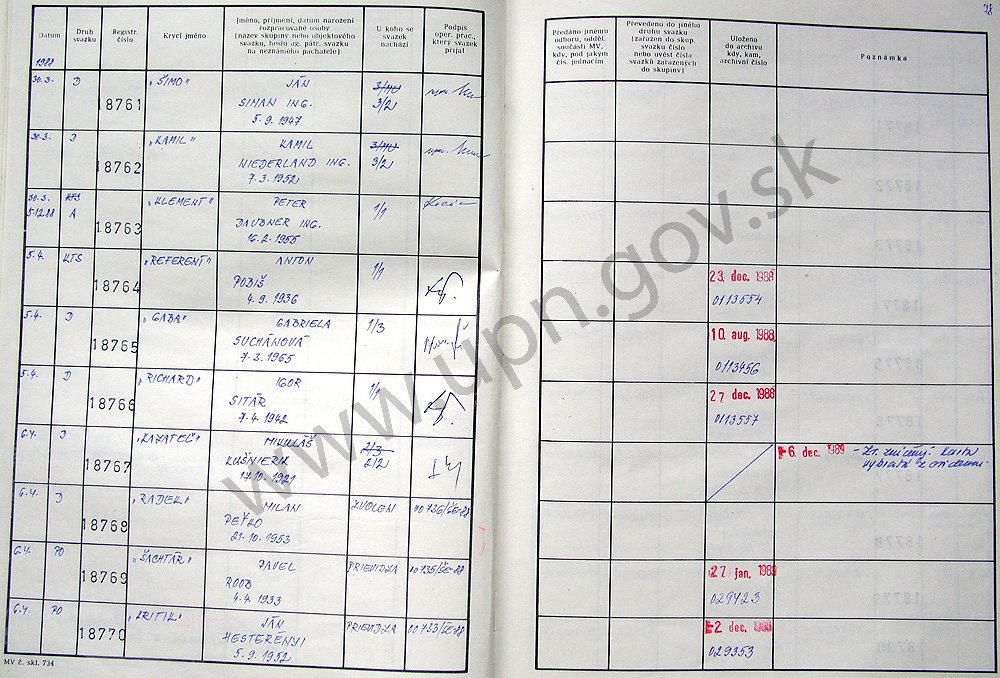 78
Datum
Druh svazku
Registr. číslo
Krycí jméno
Jméno, příjmení, datum narození
rozpracované osoby
(název skupiny nebo objektového
svazku, heslo ag. pátr. svazku
na neznámého pachatele)
U koho se
svazek
nachází
Podpis
oper. prac.,
který svazek
přijal
Předáno jinému
odboru, odděl.
součásti MV,
kdy, pod jakým
čís. jednacím
Převedeno do jiného
druhu svazku
(zařazen do skup.
svazku číslo
nebo uvést čísla
svazků zařazených
do skupiny)
Uloženo
do archivu
kdy, kam,
archivní číslo
Poznámka
1988
30.3. D 18761 „ŠIMO" JÁN
SIMAN ING.
5.9.1947
3/2
30.3. D 18762 „KAMIL" KAMIL
NIEDERLAND ING.
7.3.1952
3/2
30.3. KTS 18763 „KLEMENT" PETER 1/1
5.12.88 A
DAUBNER ING.
16.2.1955
5.4. KTS 18764 „REFERENT" ANTON 1/1
POBIŠ
4.9.1936
23. dec. 1988
0113554
5.4. D 18765 „GABA" GABRIELA 1/3
SUCHÁNOVÁ
7.3.1965
10. aug. 1988
0113456
5.4. D 18766 „RICHARD" IGOR 1/1
SITÁR
7.4.1942
27 dec. 1988
0113557
6.4. D 18767 „KAZATEĽ" MIKULÁŠ 2/3
KUŠNIERIK 2/2
17.10.1921
6. dec. 1989
6.4. D 18768 „RADEK" MILAN ZVOLEN 00736/ŠE-88
PEŤKO
21.10.1953
6.4. PO 18769 „ŠACHTÁR" PAVEL PRIEVIDZA 00735/ŠE-88
ROOB
4.4.1933
27. jan. 1989
029423
6.4. PO 18770 „KRITIK" JÁN PRIEVIDZA 00733/ŠE-88
HESTERÉNYI
5.9.1952
2. dec. 1988
029353
MV č. skl. 734
www.upn.gov.sk